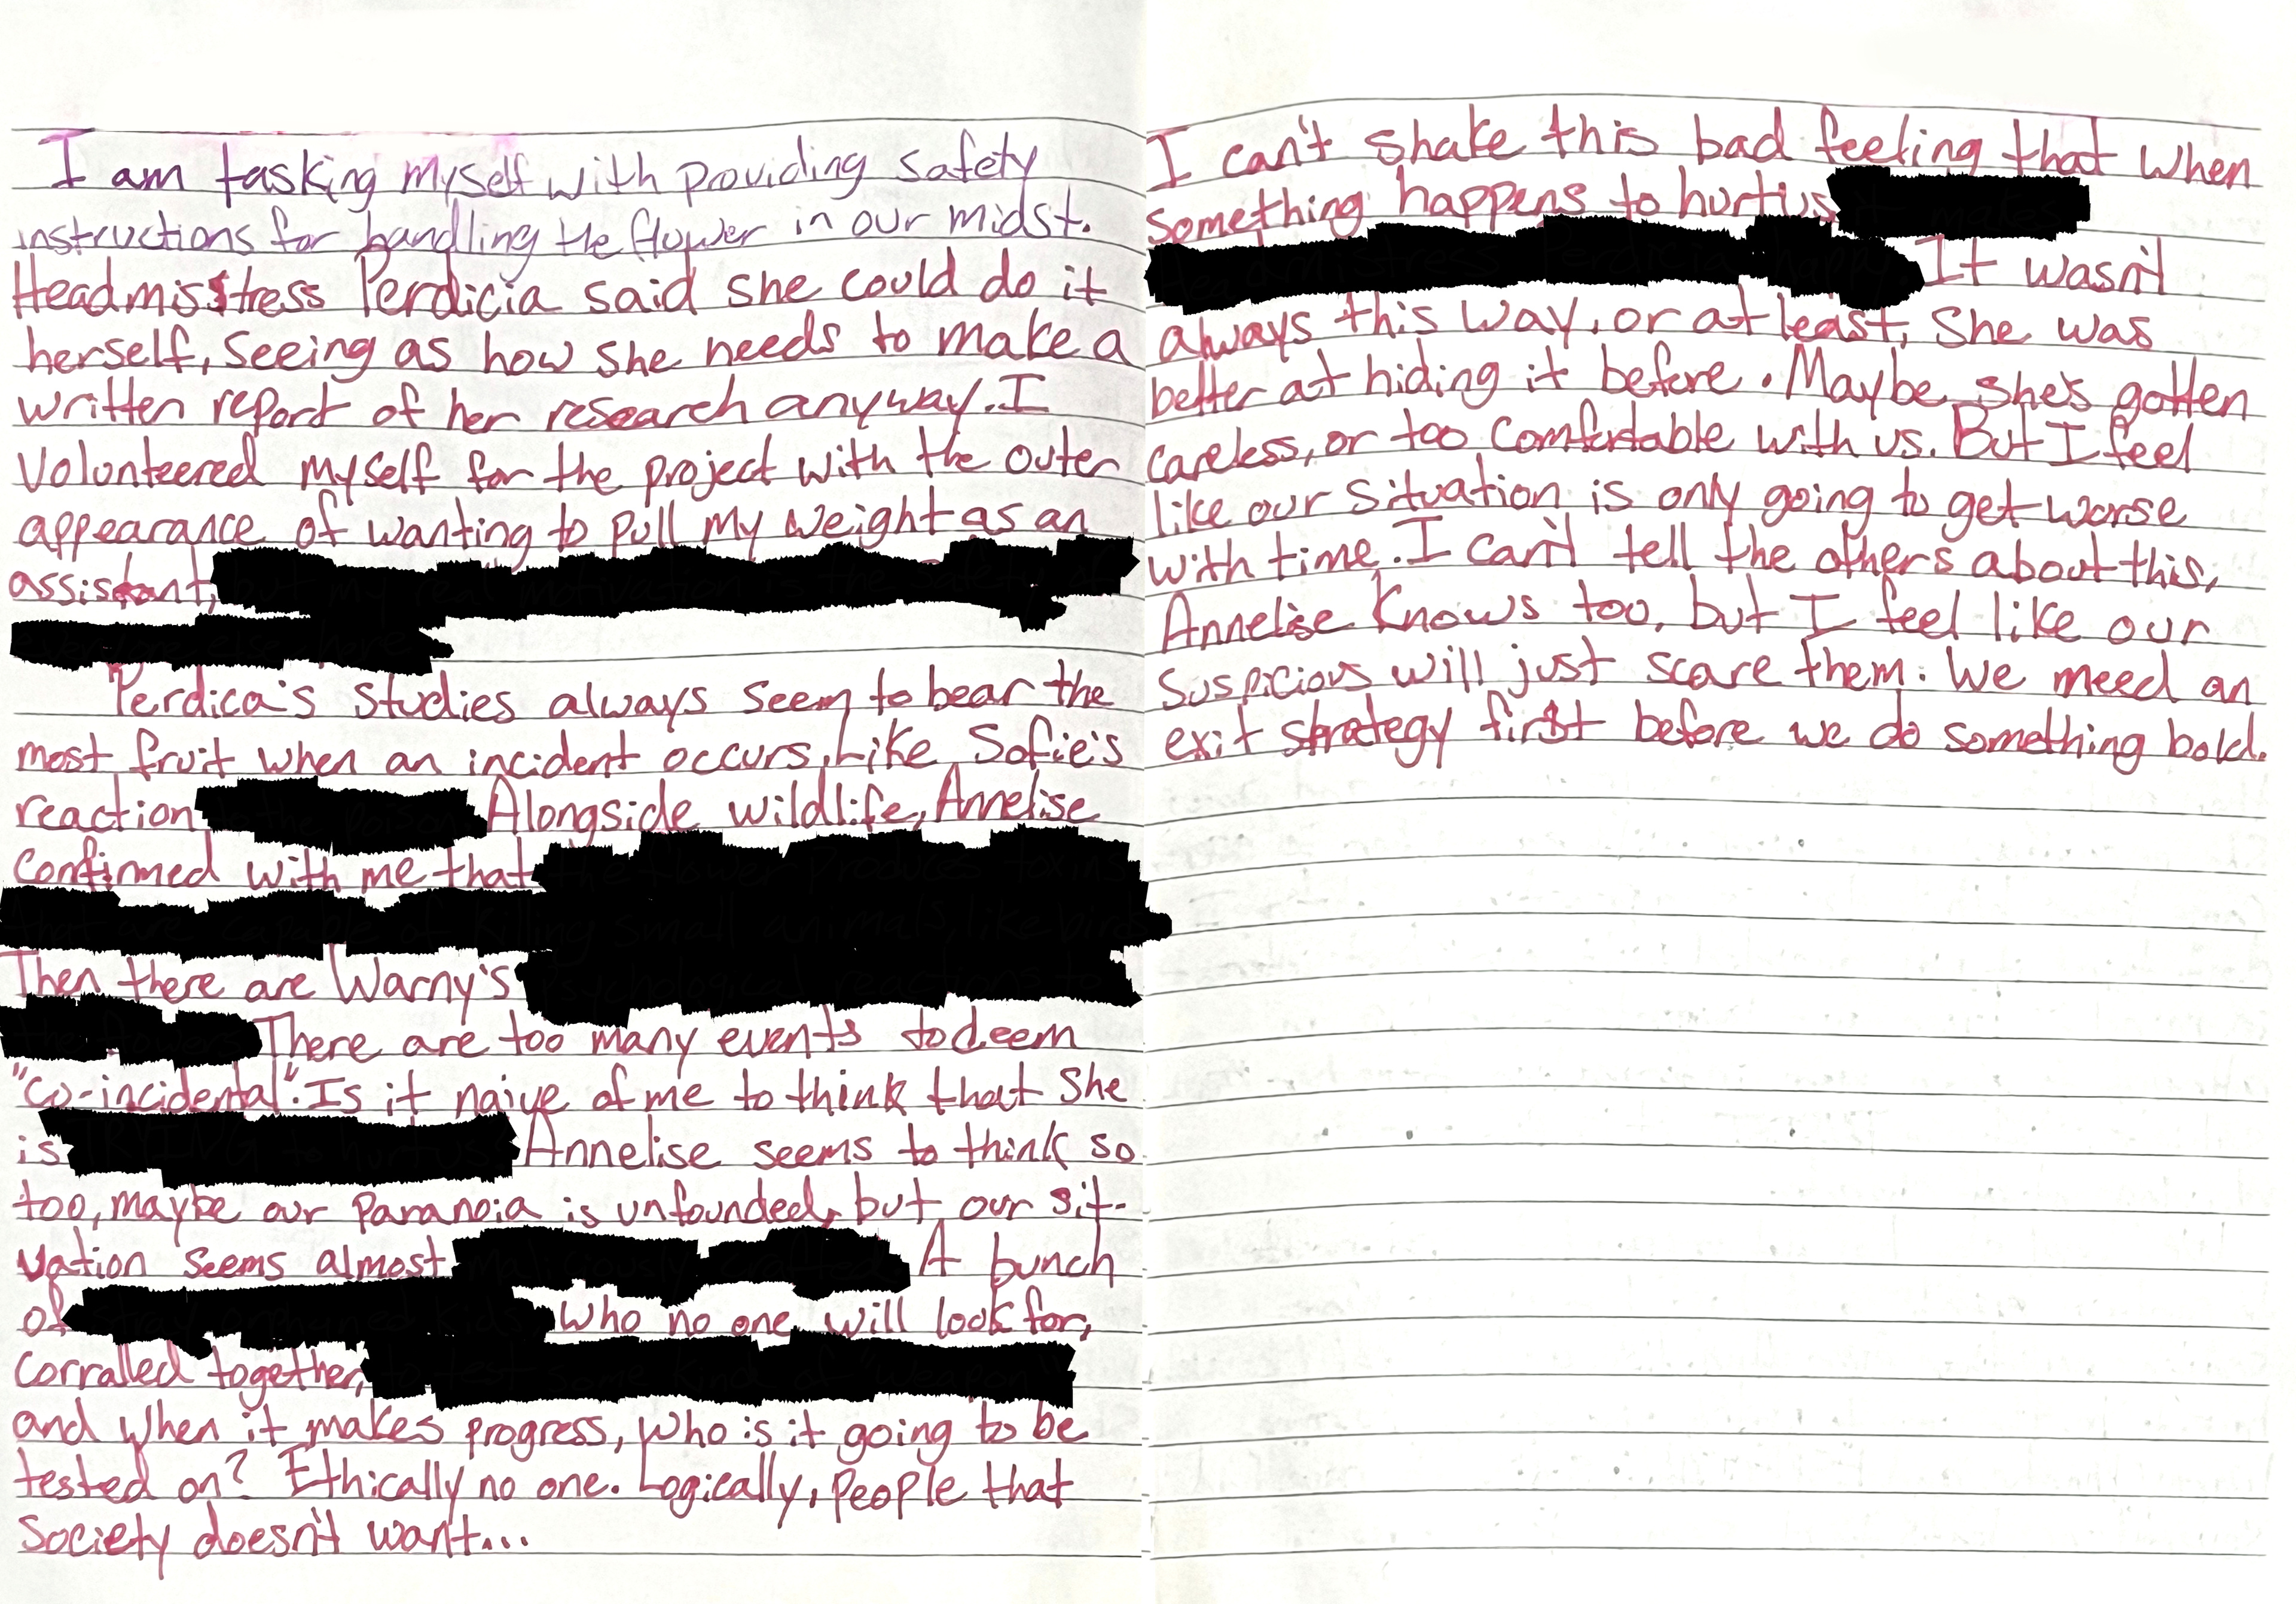 I am tasking myself with providing safety
instructions for handling the flower in our midst.
Headmisstress Perdicia said she could do it
herself, seeing as how she needs to make a
written report of her research anyway. I
volunteered myself for the project with the outer
appearance of wanting to pull my weight as an
assistant,
Perdica's studies always seem to bear the
most fruit when an incident occurs, Like Sofie's
reaction
Alongside wildlife, Annelise
confirmed with me that
Then there are Warny's
There are too many events to deem
"co-incidental". Is it naive of me to think that she
is
Annelise seems to think so
too, maybe our paranoia is unfounded, but our sit-
uation seems almost
A bunch
of
who no one will look for,
corralled together,
and when it makes progress, who is it going to be
tested on? Ethically no one. Logically, people that
society doesn't want...
I can't shake this bad feeling that when
something happens to hurt us
It wasn't
always this way, or at least, she was
better at hiding it before. Maybe she's gotten
careless, or too comfortable with us. But I feel
like our situation is only going to get worse
with time. I can't tell the others about this,
Annelise knows too, but I feel like our
suspicious will just scare them. We need an
exit strategy first before we do something bold.